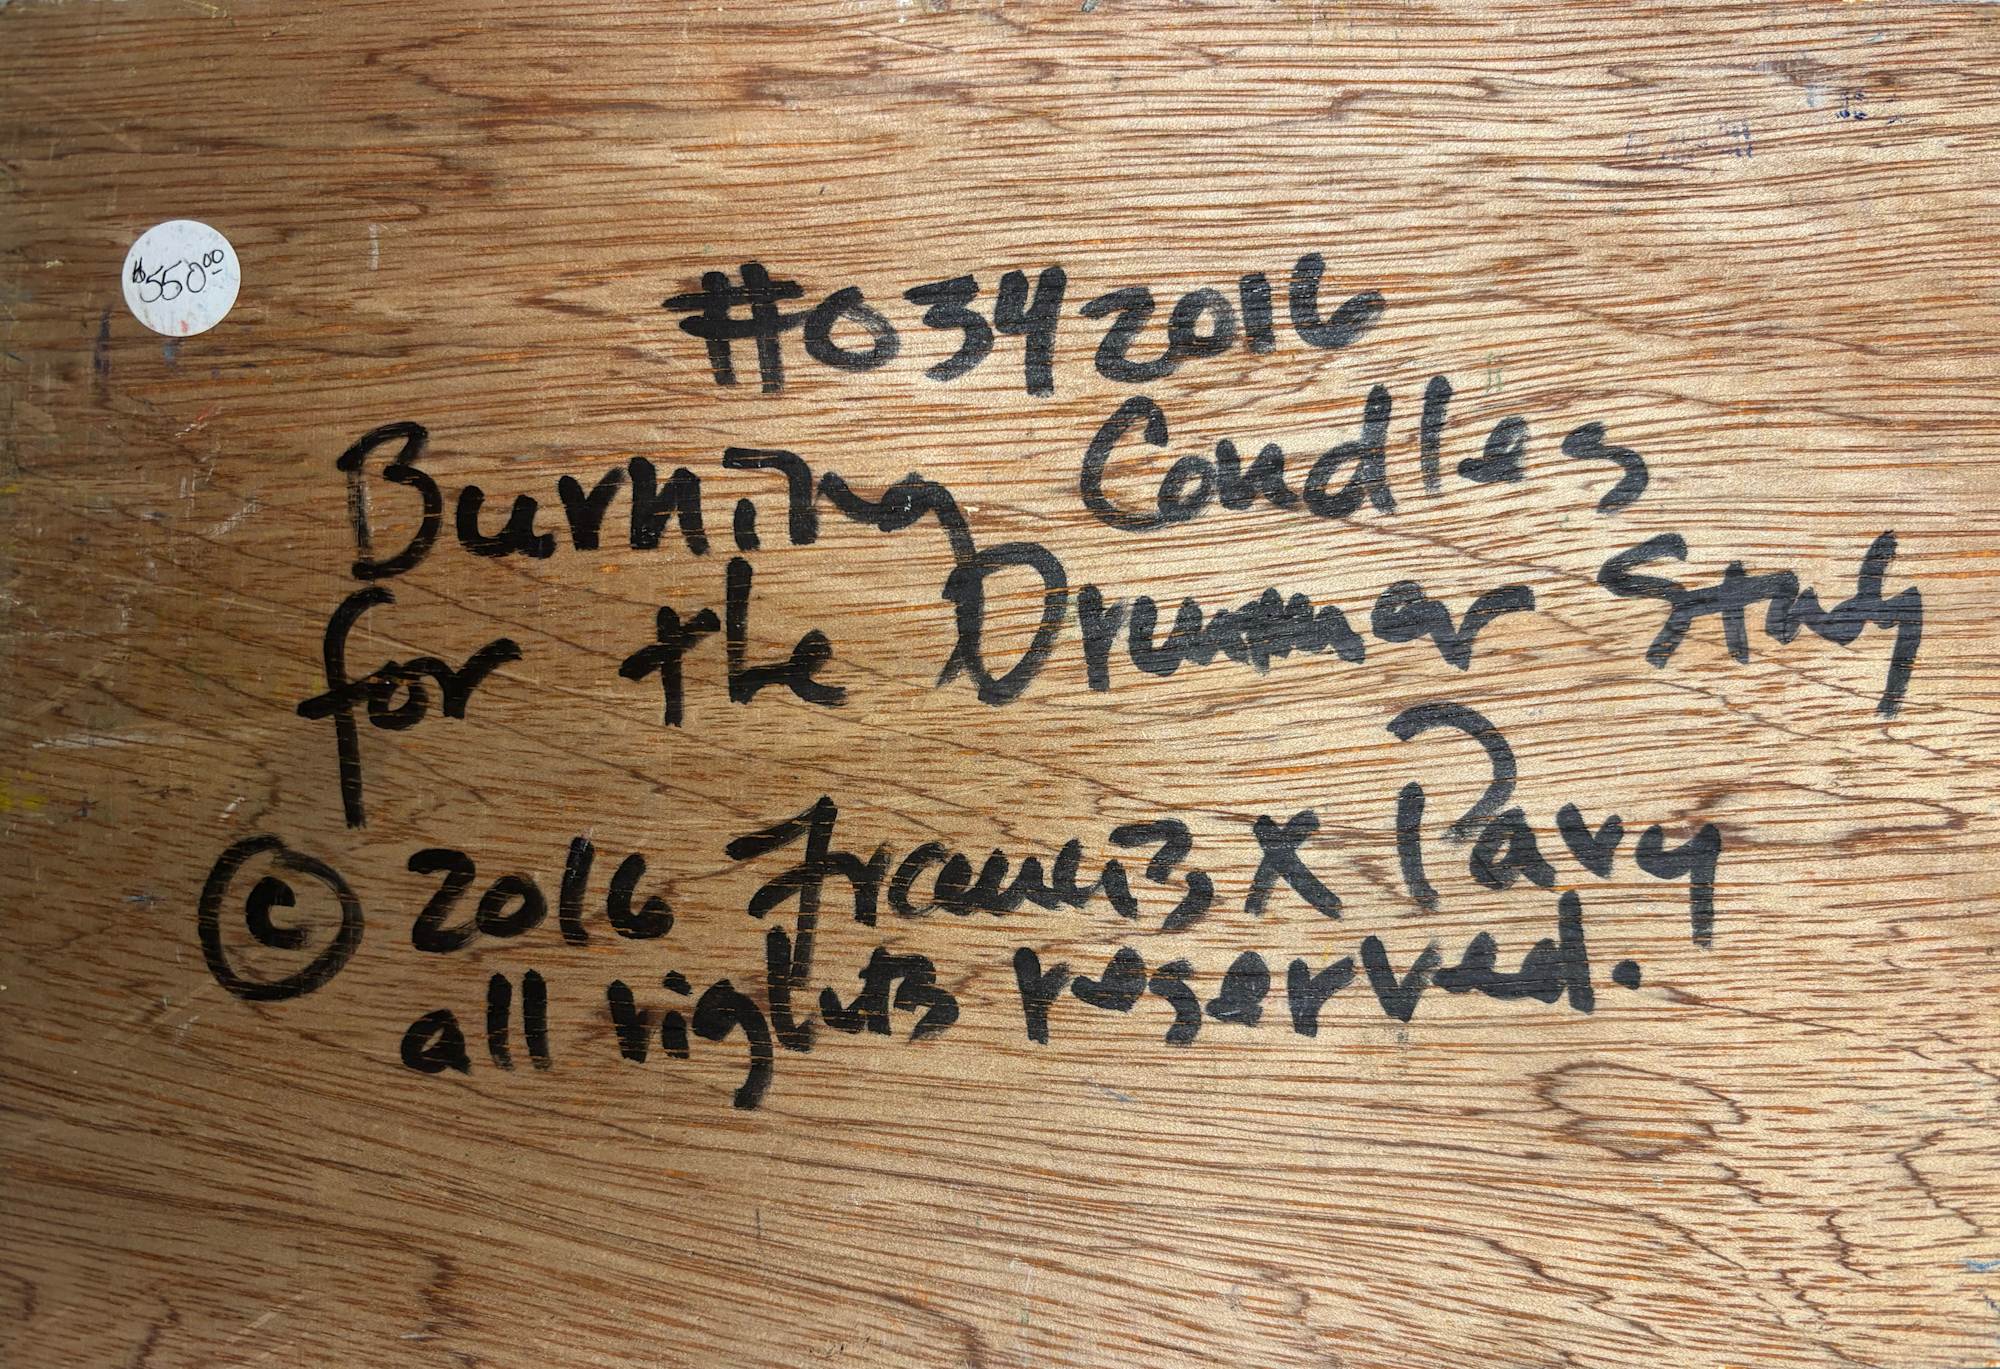 $550.00
#0342016
Burning Candles
for the Drummer Study
© 2016 Francis X Pavy
all rights reserved.